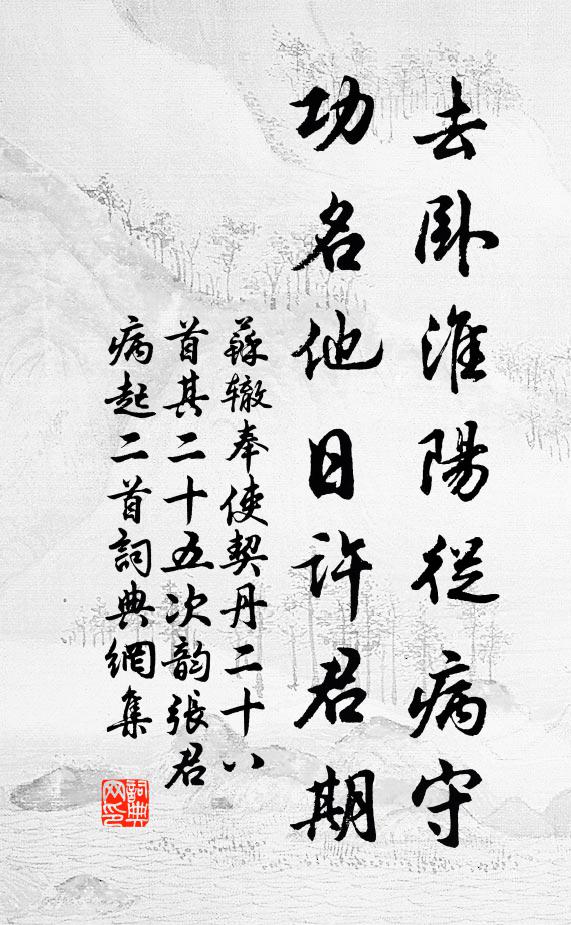 去卧淮陽從病守
功名他日許君期
蘇辙奉使契丹二十八
首其二十五次韵張君
病起二首詞典網集
詞典
网印